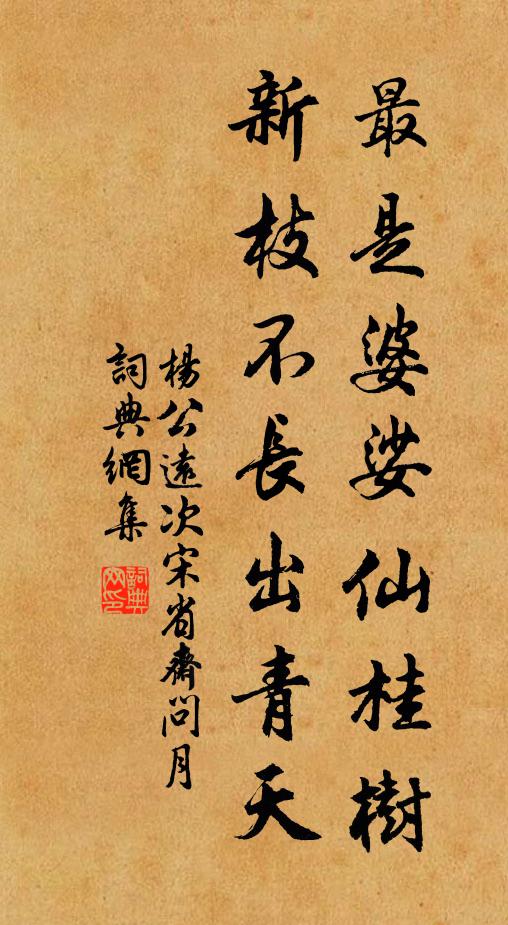 最是婆娑仙桂樹
新枝不長出青天
楊公遠次宋省齋問月
詞典網集
詞典網印